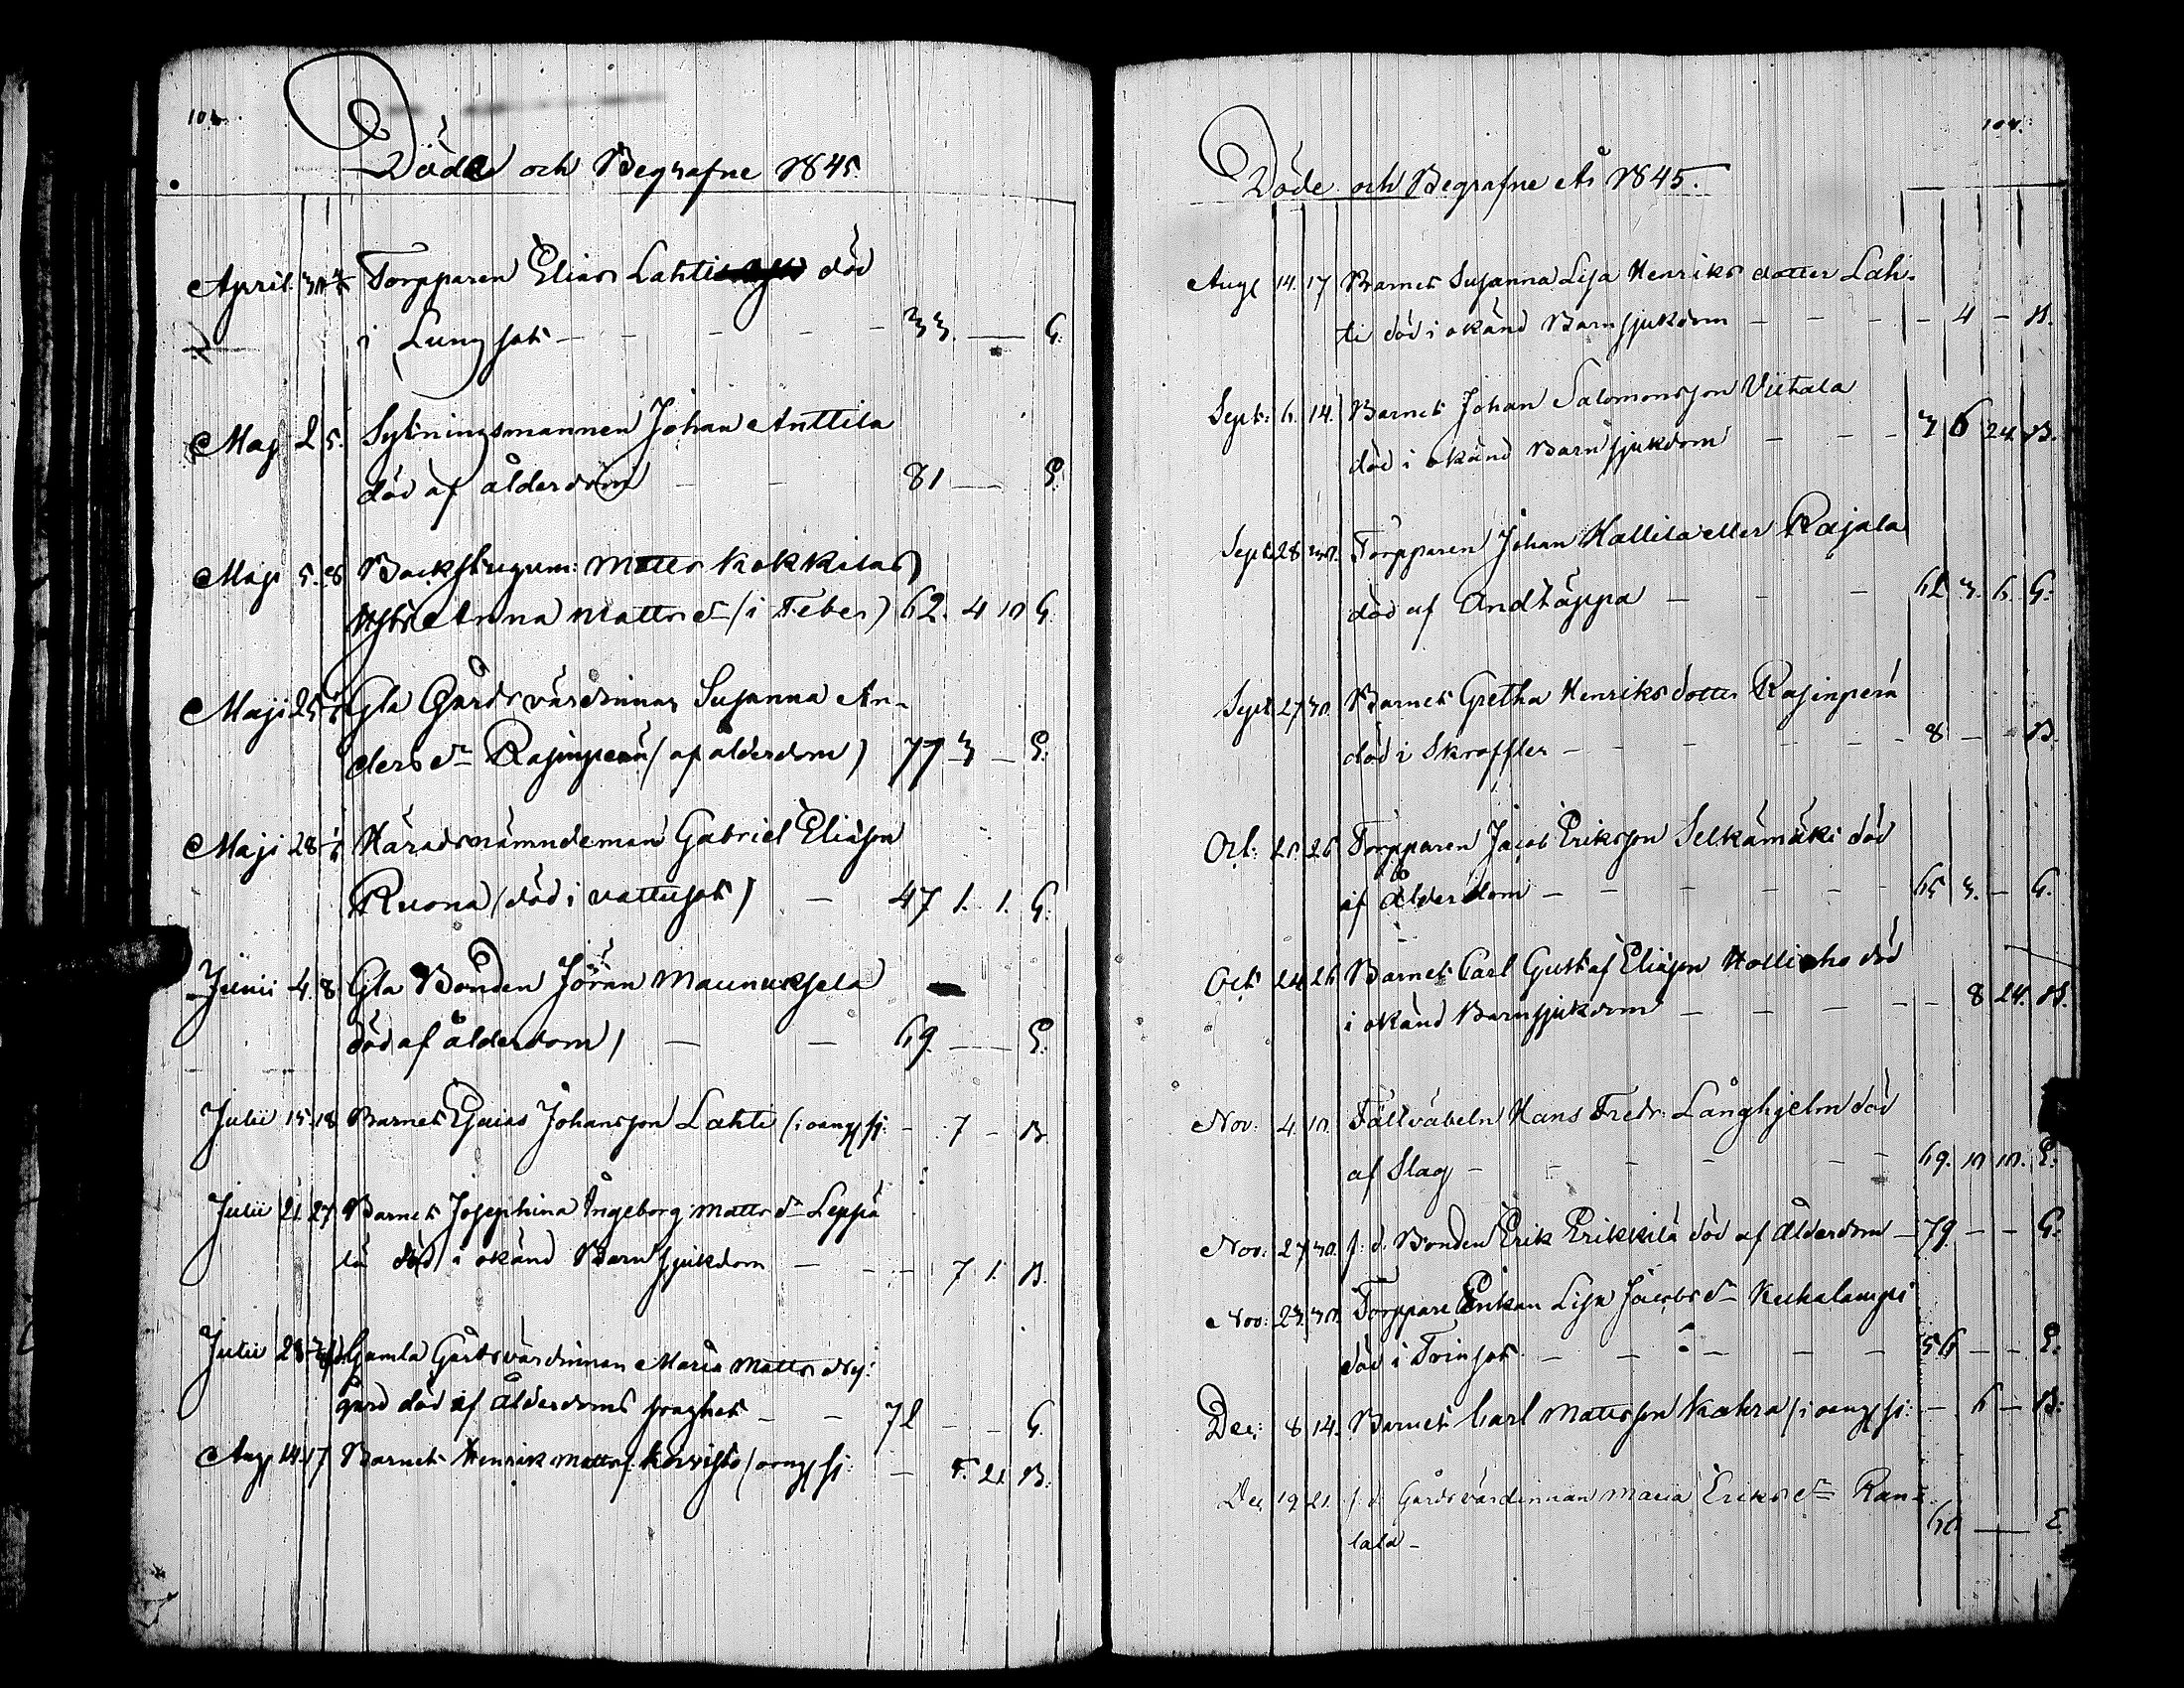 Döde och Begrafne 1845.
April 30 4/5 Torpparen Elias Lahti död
i Lungsot — — — — 33. — G.
Maji 2 5. Sytningsmannen Johan Anttila
död af ålderdom — — 81 — E.
Maji 5. 8 Backstugum: Matts Kokkilas
Hstr Anna Matts dr (i Feber) 62. 4 10 G.
Maji 25 Gla Gårdsvärdinnan Susanna An-
ders dr Rajinperä (af ålderdom) 77 3 — E.
Maji 28 1/6 Häradsnämndeman Gabriel Eliasson
Ruona (död i vattusot) — 47 1. 1. G.
Junii 4. 8 Gla Bonden Jöran Maunuksela
död af ålderdom) — — 69. — E.
Julii 15. 18 Barnet Esaias Johansson Lahti (i oang sj: — 7 — B.
Julii 21. 27 Barnet Josephina Ingeborg Matts dr Leppä
lä död i okänd Barnsjukdom — — — 7 1. B.
Julii 28 Gamla Gårdsvärdinnan Maria Matts dr
gård död af Ålderdoms svaghet — — 72 — — G.
Aug 14. 17 Barnet Henrik Mattss. Koivisto (oang sj: — 5. 21 B.
Döde och Begrafne År 1845.
Aug 14. 17 Barnet Susanna Lisa Henriks dotter Lah-
ti död i okänd Barnsjukdom — — — — 4 — B.
Sept: 6. 14. Barnet Johan Salomonsson Viitala
död i okänd Barnsjukdom — — — 3 6 24. B.
Sept 28 30. Torpparen Johan Hallila eller Rajala
död af Andtäppa — — — 62 3. 6. G.
Sept 27 30. Barnet Gretha Henriks dotter Rajinperä
död i Skroffler — — — — — — 8 — — B.
Oct: 20. 26 Torpparen Jacob Eriksson Selkämäki död
af ålderdom — — — — — — 65 3. — G.
Oct 24 26 Barnet Carl Gustaf Eliasson Holliaho död
i okänd Barnsjukdom — — — — — 8 24. B.
Nov: 4. 10. Fältväbeln Hans Fredr: Långhjelm död
af Slag — — — — — — 69. 10 10. E.
Nov: 27 30. f: d: Bonden Erik Erikkilä död af Ålderdom — 79 — — G.
Nov: 23. 30. Torppare Enkan Lisa Jacobs dr Kuhalampi
död i Tvinsot. — — — — — 56 — — E.
Dec: 8 14. Barnet Carl Mattsson Kahra (i oang sj: — 6 — B.
Dec 19 21. f. d. Gårdsvärdinnan Maria Eriks dr Ran-
tala — 60 — E.